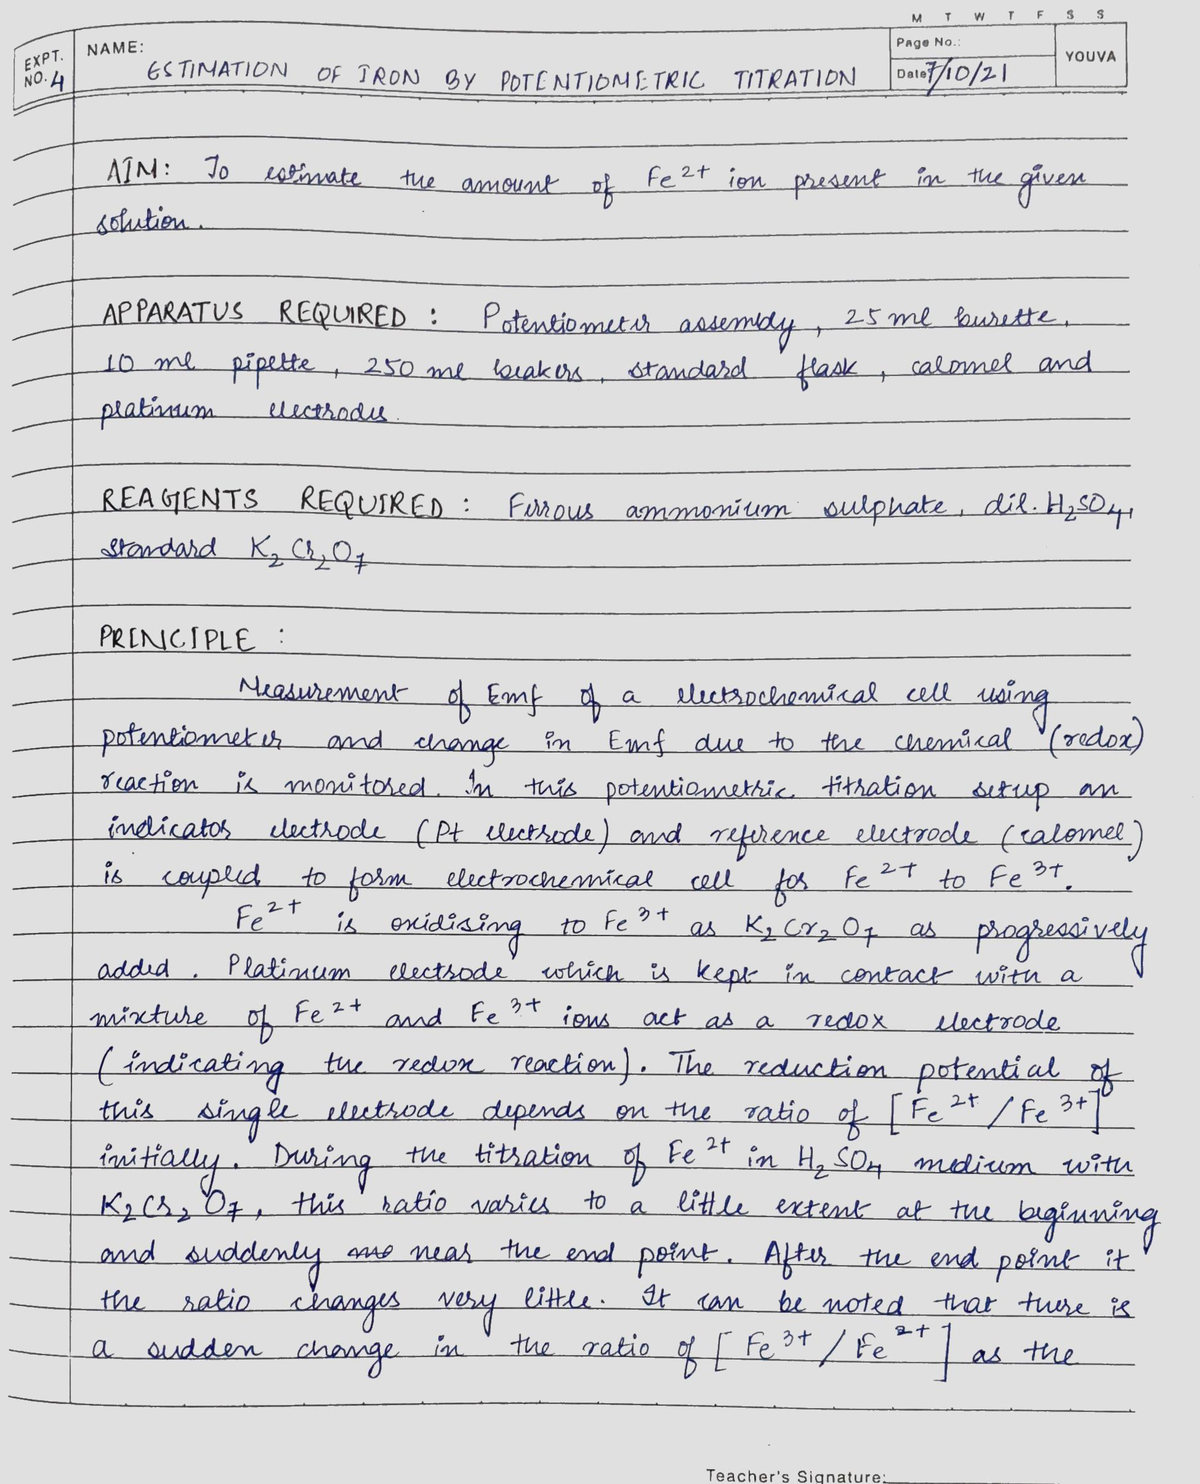 M T W T F S S
EXPT. NO. 4
NAME: ESTIMATION OF IRON BY POTENTIOMETRIC TITRATION
Page No.:
Date 7/10/21
YOUVA
AIM: To estimate the amount of Fe²⁺ ion present in the given
solution.
APPARATUS REQUIRED : Potentiometer assembly, 25 ml burette,
10 ml pipette, 250 ml beakers, standard flask, calomel and
platinum electrodes.
REAGENTS REQUIRED : Ferrous ammonium sulphate, dil. H₂SO₄,
standard K₂Cr₂O₇
PRINCIPLE :
Measurement of Emf of a electrochemical cell using
potentiometer and change in Emf due to the chemical (redox)
reaction is monitored. In this potentiometric titration setup an
indicator electrode (Pt electrode) and reference electrode (calomel)
is coupled to form electrochemical cell for Fe²⁺ to Fe³⁺.
Fe²⁺ is oxidising to Fe³⁺ as K₂Cr₂O₇ as progressively
added. Platinum electrode which is kept in contact with a
mixture of Fe²⁺ and Fe³⁺ ions act as a redox electrode
(indicating the redox reaction). The reduction potential of
this single electrode depends on the ratio of [Fe²⁺/Fe³⁺]
initially. During the titration of Fe²⁺ in H₂SO₄ medium with
K₂Cr₂O₇, this ratio varies to a little extent at the beginning
and suddenly near the end point. After the end point it
the ratio changes very little. It can be noted that there is
a sudden change in the ratio of [Fe³⁺/Fe²⁺] as the
Teacher's Signature: